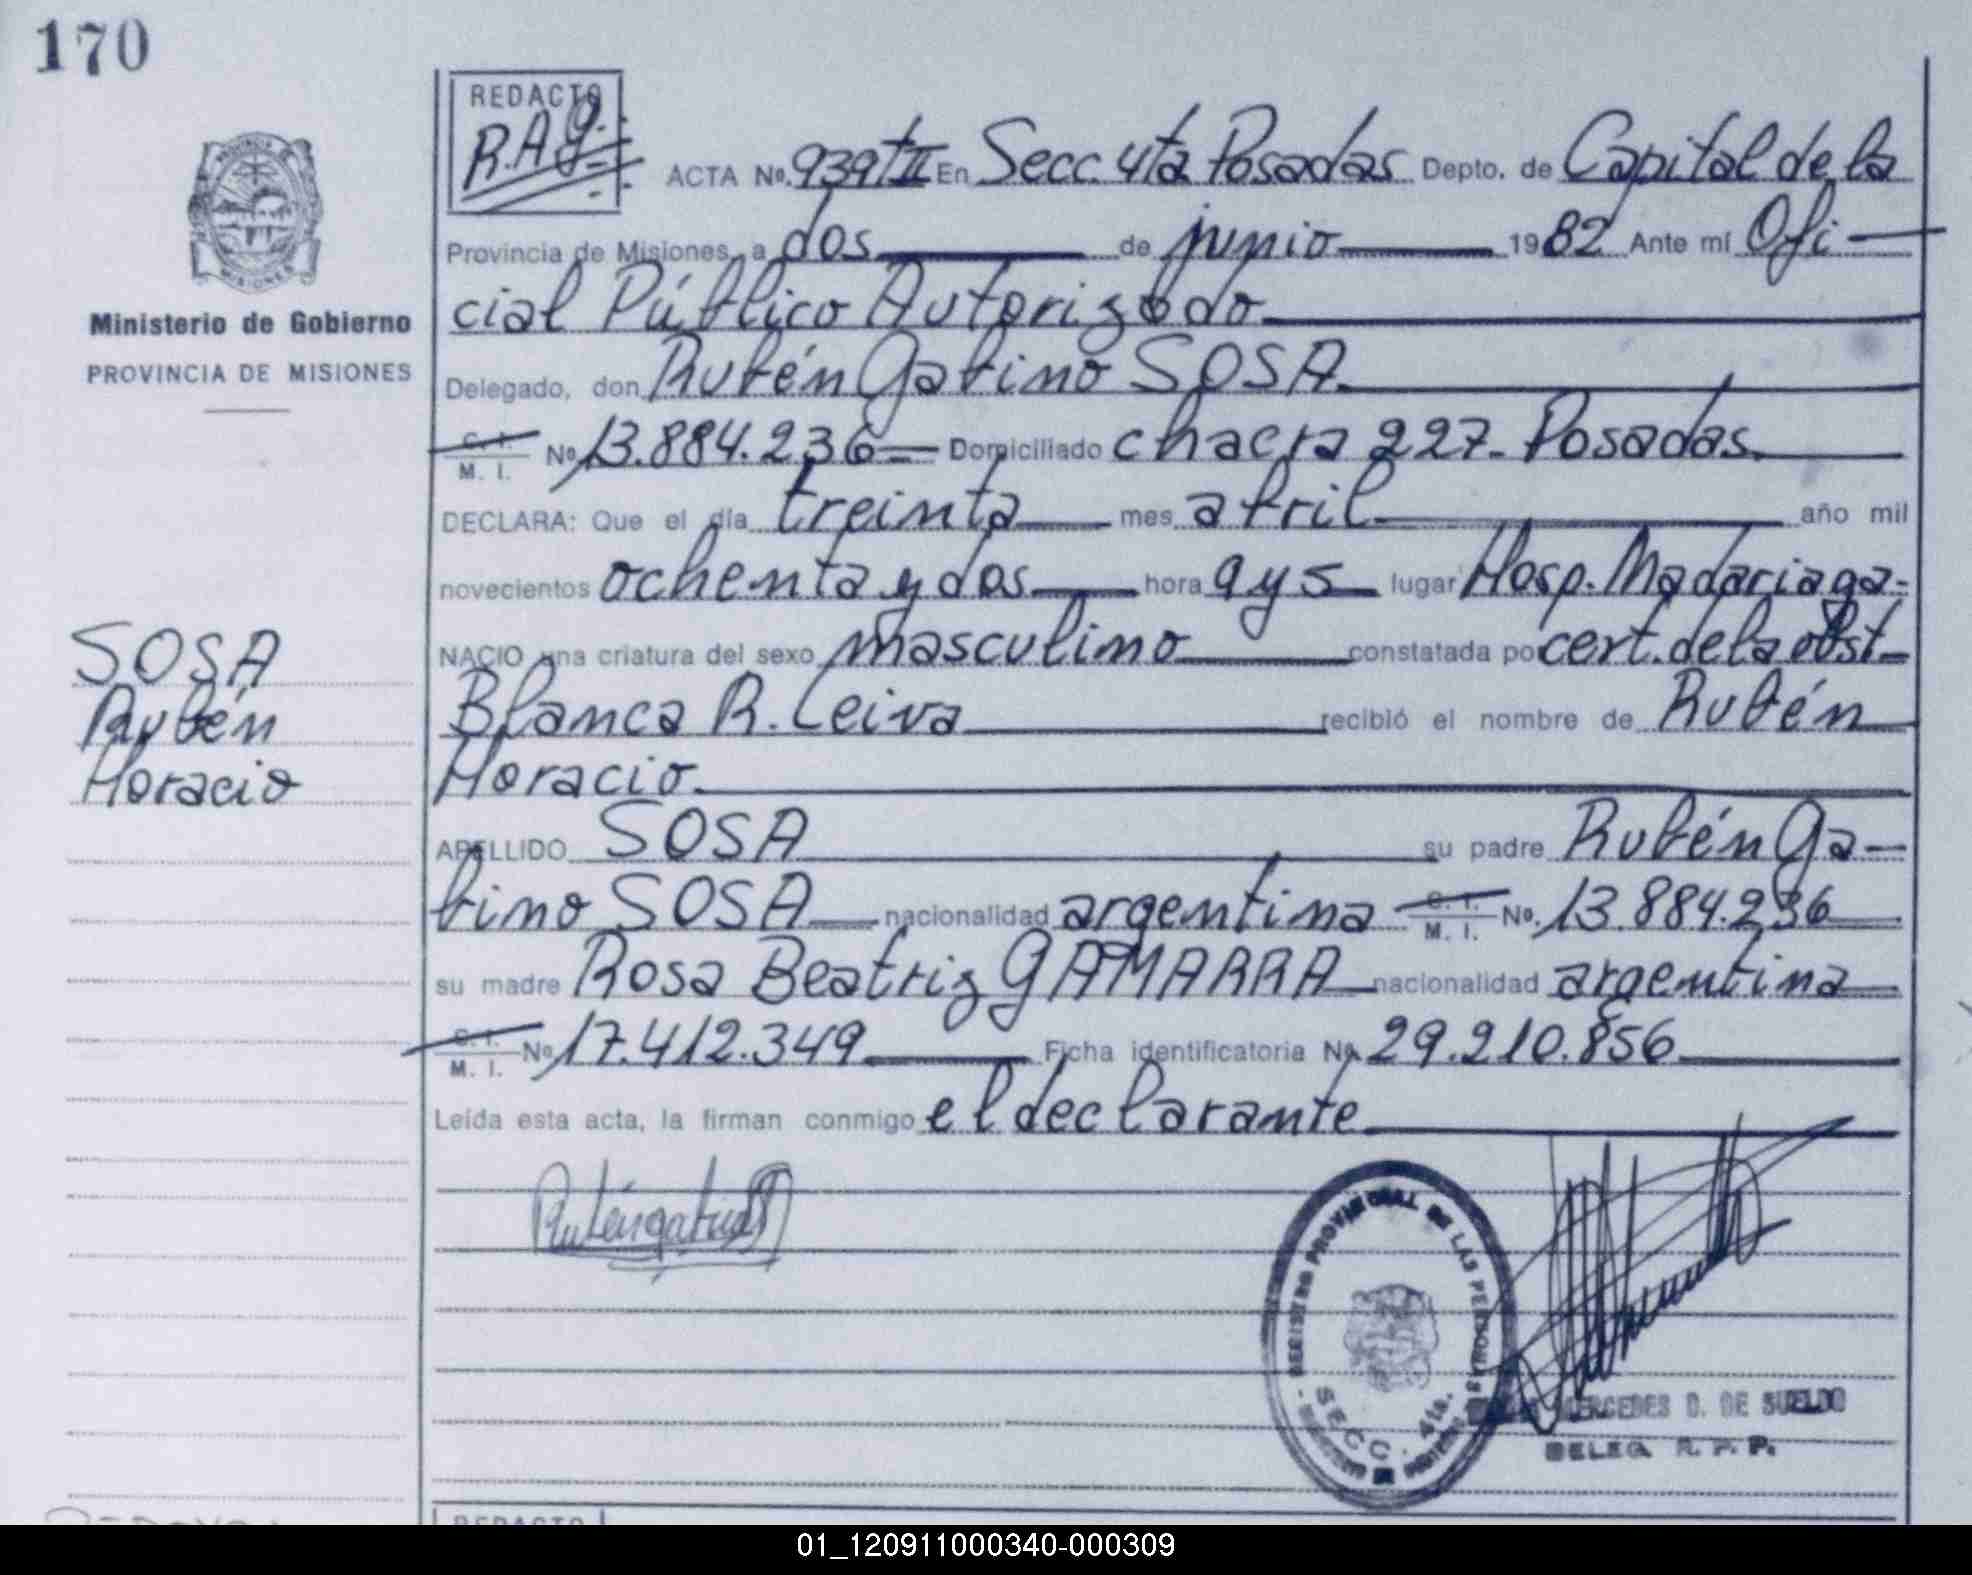 170
REDACTO
R.A.G.
ACTA No. 939 TII En Secc. 4ta Posadas Depto. de Capital de la
Provincia de Misiones, a dos de junio 1982 Ante mí Ofi-
cial Público Autorizado
Delegado, don Rubén Gabino SOSA
C. I.
M. I. No. 13.884.236 Domiciliado chacra 227- Posadas
DECLARA: Que el día treinta mes abril año mil
novecientos ochenta y dos hora 9 y 5 lugar Hosp. Madariaga-
NACIO una criatura del sexo masculino constatada por cert. de la obst-
Blanca R. Leiva recibió el nombre de Rubén
Horacio.
APELLIDO SOSA su padre Rubén Ga-
bino SOSA nacionalidad argentina C. I. M. I. No. 13.884.236
su madre Rosa Beatriz GAMARRA nacionalidad argentina
C. I.
M. I. No. 17.412.349 Ficha identificatoria No. 29.210.856
Leída esta acta, la firman conmigo el declarante
MISIONES
Ministerio de Gobierno
PROVINCIA DE MISIONES
SOSA
Rubén
Horacio
REGISTRO PROVINCIAL DE LAS PERSONAS
SECC. 4ta.
MERCEDES D. DE SUELDO
DELEG. R. P. P.
REDACTO
01_120911000340-000309